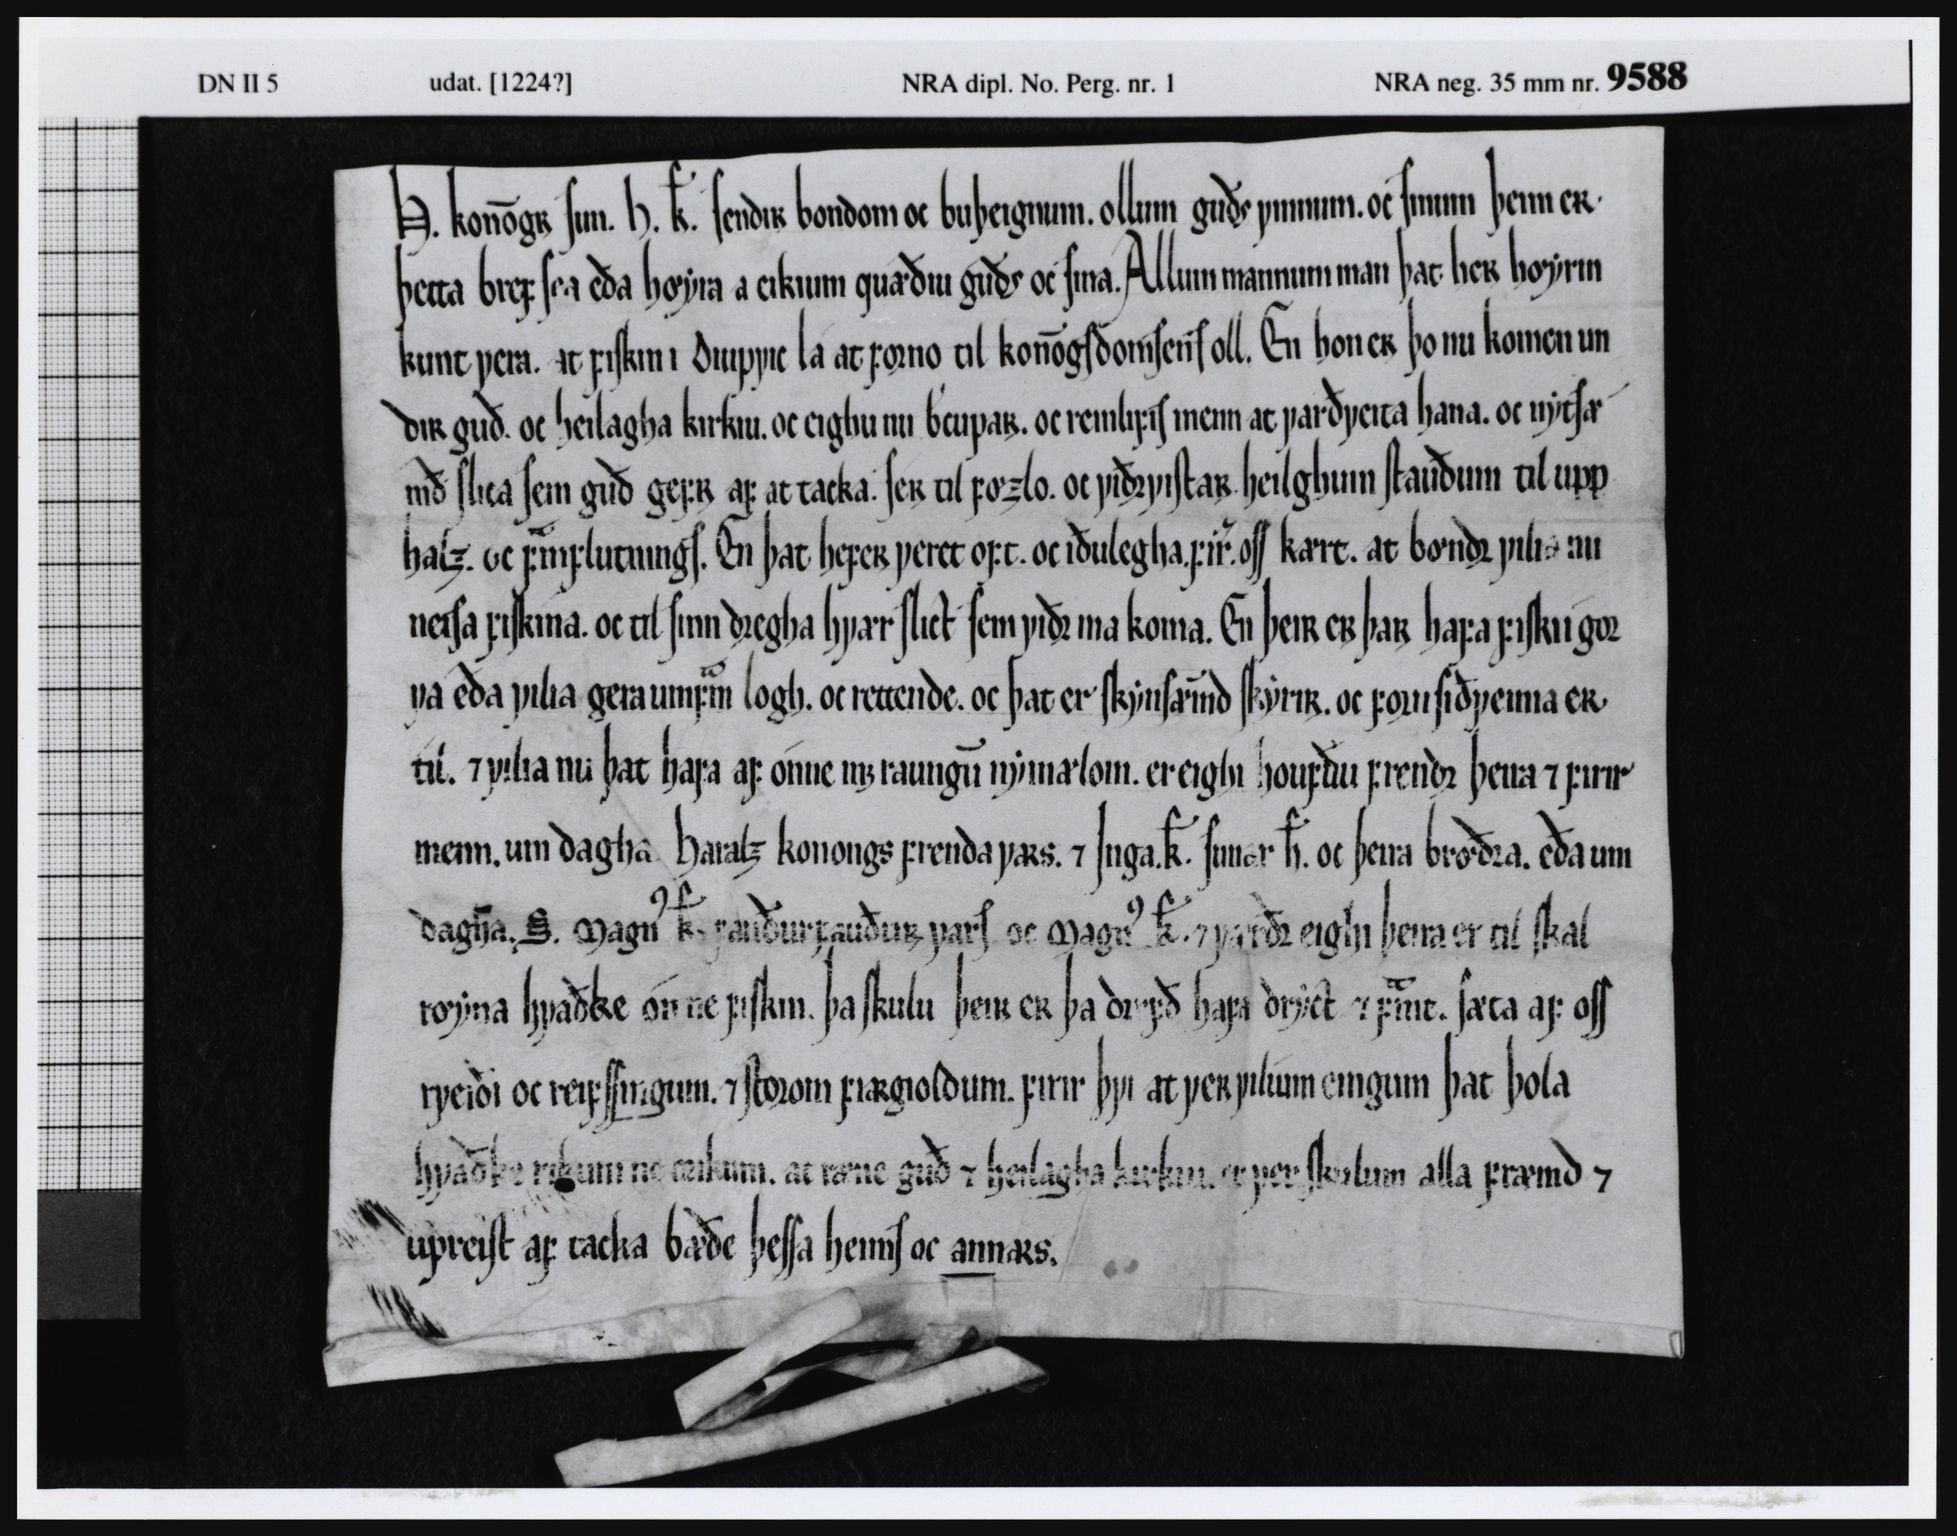 DN II 5 udat. [1224?] NRA dipl. No. Perg. nr. 1 NRA neg. 35 mm nr. 9588
H. konōgʀ ſun. h. k̄. ſendiʀ bondom oc buþeignum. ollum guðſ ꝩinnum. oc ſinum þeim eʀ
þetta breꝼ ſea eða hoyra a eikium quæðiu guðſ oc ſina. Allum mannum man þat heʀ hoyrin
kunt ꝩera. at ꝼiſkin i diupꝩic la at ꝼorno til konōgſdomſenſ oll. En hon eʀ þo nu komen un
diʀ guð. oc heilagha kirkiu. oc eighu nu bcupaʀ. oc reinliꝼiſ menn at ꝩarðꝩeita hana. oc nytſæ
mð ſlica ſem guð geꝼʀ aꝼ at tacka. ſeʀ til ꝼozlo. oc ꝩiðrꝩiſtaʀ heilghum ſtauðum til upp
halz. oc ꝼ̄mꝼlutningſ. En þat heꝼeʀ ꝩeret oꝼt. oc iðulegha. ꝼir̄. oſſ kært. at bondr ꝩilia nu
neiſa ꝼiſkina. oc til ſinn dregha hꝩær ſlict ſem ꝩiðr ma koma. En þeiʀ eʀ þaʀ haꝼa ꝼiſki gor
ꝩa eða ꝩilia gera umꝼm̄ logh. oc rettende. oc þat er ſkynſæmd ſkyriʀ. oc ꝼorn ſiðꝩenna eʀ
til. ⁊ ꝩilia nu þat haꝼa aꝼ onne raungū nymælom. er eighi houꝼðu ꝼrendr þeira ⁊ ꝼirir
menn. um dagha haralz konongs ꝼrenda ꝩars. ⁊ Inga. k̄. ſunar h̄. oc þeira brøðra. eða um
dagha. S. Magnꝰ k̄. ꝼauðurꝼauður ꝩarſ oc Magnꝰ k̄. ⁊ ꝩerðr eighi þeira er til ſkal
royna hꝩaðke onne ꝼiſkin. þa ſkulu þeiʀ eʀ þa dirꝼð haꝼa dryct ⁊ ꝼm̄t. ſæta aꝼ oſſ
rꝩeiði oc reiꝼſſingum. ⁊ ſtorom ꝼiærgioldum. ꝼirir þꝩi at ꝩeʀ ꝩilium eingum þat þola
hꝩaðke rikum ne orikum. at ræne guð ⁊ heilagha kirkiu. er ꝩer ſkulum alla ꝼræmd ⁊
upreiſt aꝼ tacka bæðe þeſſa heimſ oc annars.